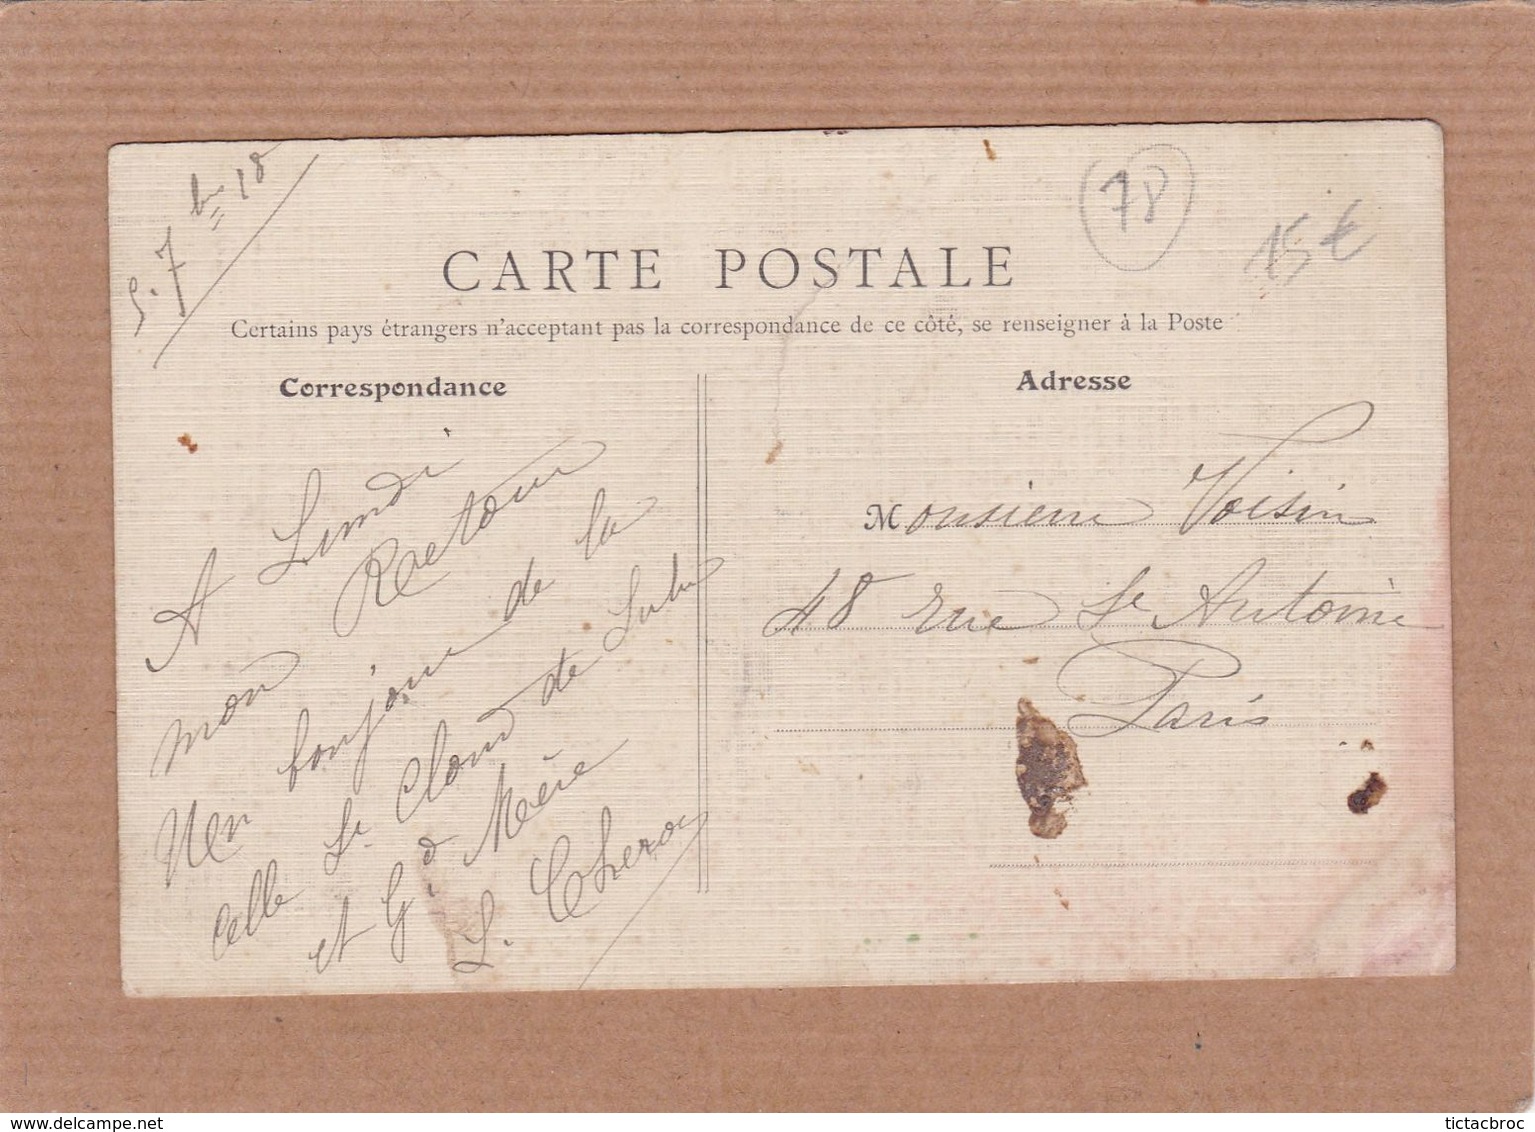 5. 7bre 18
78
15€
CARTE POSTALE
Certains pays étrangers n'acceptant pas la correspondance de ce côté, se renseigner à la Poste
Correspondance
A Lundi
mon Retour
Un bonjour de la
Celle St Cloud de
et Gd Mère
L.
Adresse
Monsieur Voisin
48 rue St Antoine
Paris
www.delcampe.net
tictacbroc